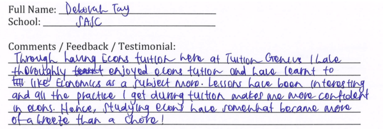 Full Name: Deborah Tay
School: SAJC
Comments / Feedback / Testimonial:
Through having Econs tuition here at Tuition Genius I have
thoroughly enjoyed econs tuition and have learnt to
like Economics as a subject more. Lessons have been interesting
and all the practice I get during tuition makes me more confident
in econs. Hence, studying econs have somewhat became more
of a breeze than a chore!